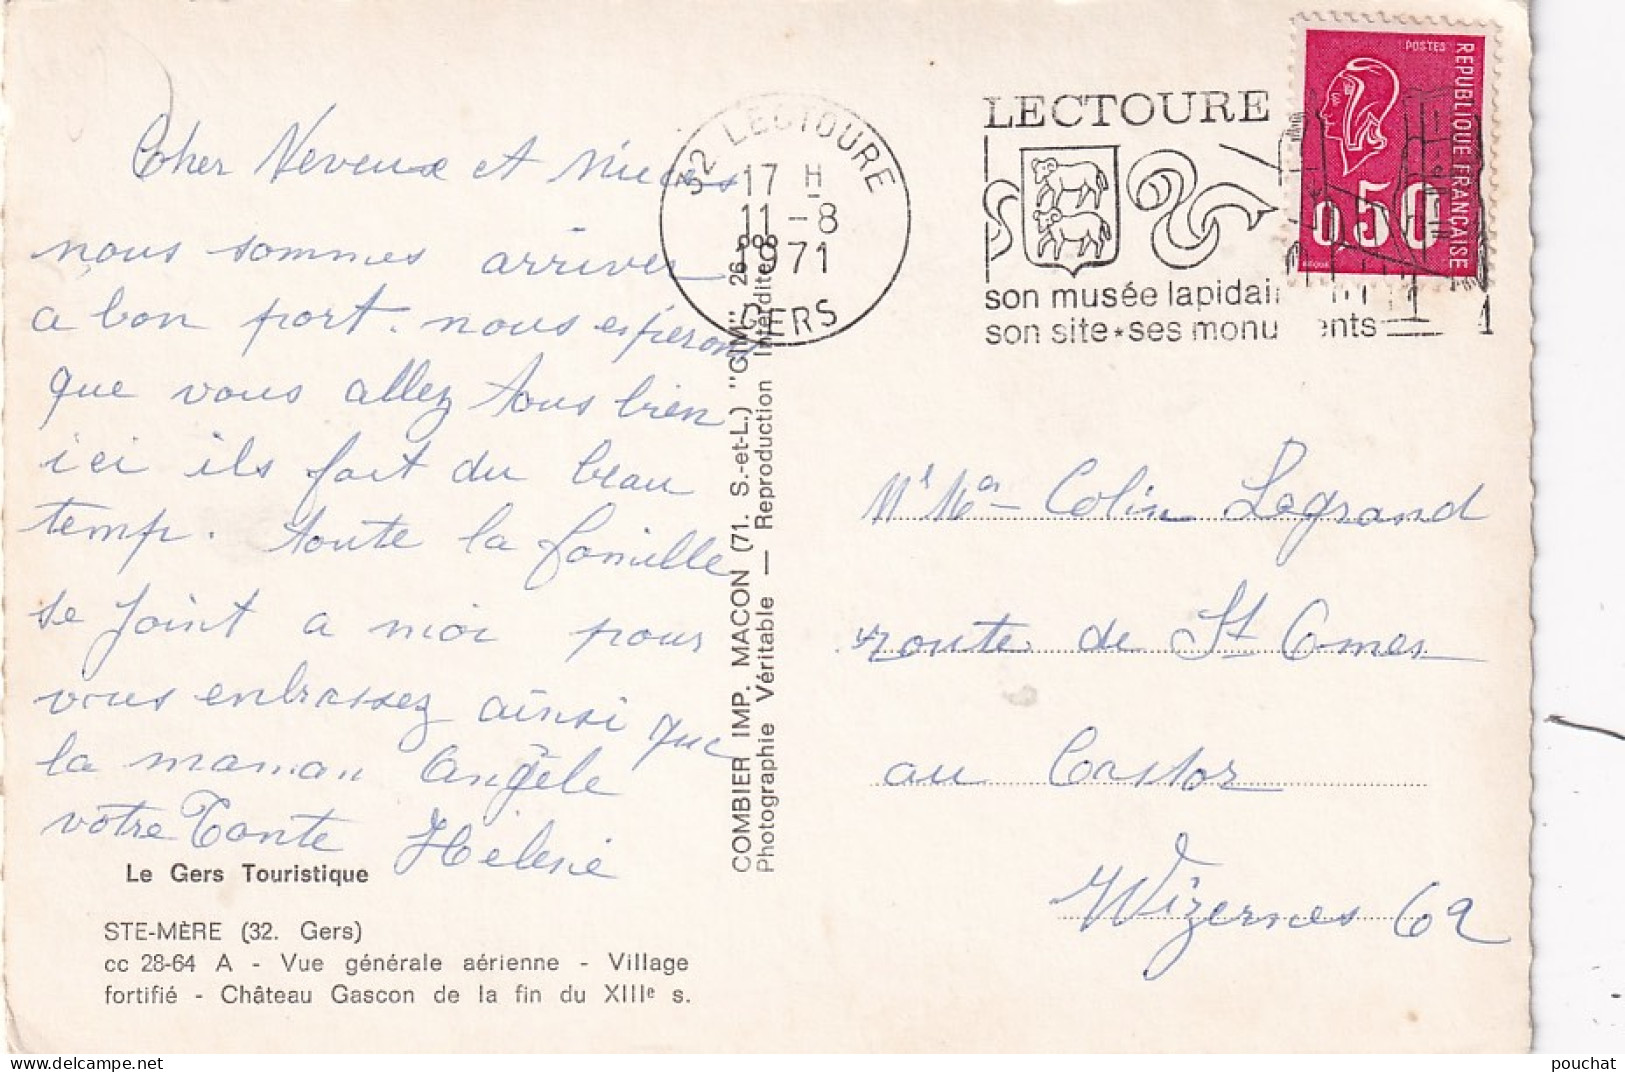 Cher Neveux et Nieces
nous sommes arriver
a bon port. nous espérons
que vous allez tous bien
ici ils fait du beau
temp. toute la famille
se joint a moi pour
vous enbrassez ainsi que
la maman Angèle
votre Tante Hélène
Le Gers Touristique
STE-MÈRE (32. Gers)
cc 28-64 A - Vue générale aérienne - Village
fortifié - Château Gascon de la fin du XIIIe s.
COMBIER IMP. MACON (71. S.-et-L.) "GIM" 26
Photographie Véritable — Reproduction Interdite
32 LECTOURE
17 H
11-8
1971
GERS
LECTOURE
son musée
son site * ses
POSTES
REPUBLIQUE FRANÇAISE
0,50
Mr Me Colin Legrand
route de St Omer
au Castor
Wizernes 62
pouchat